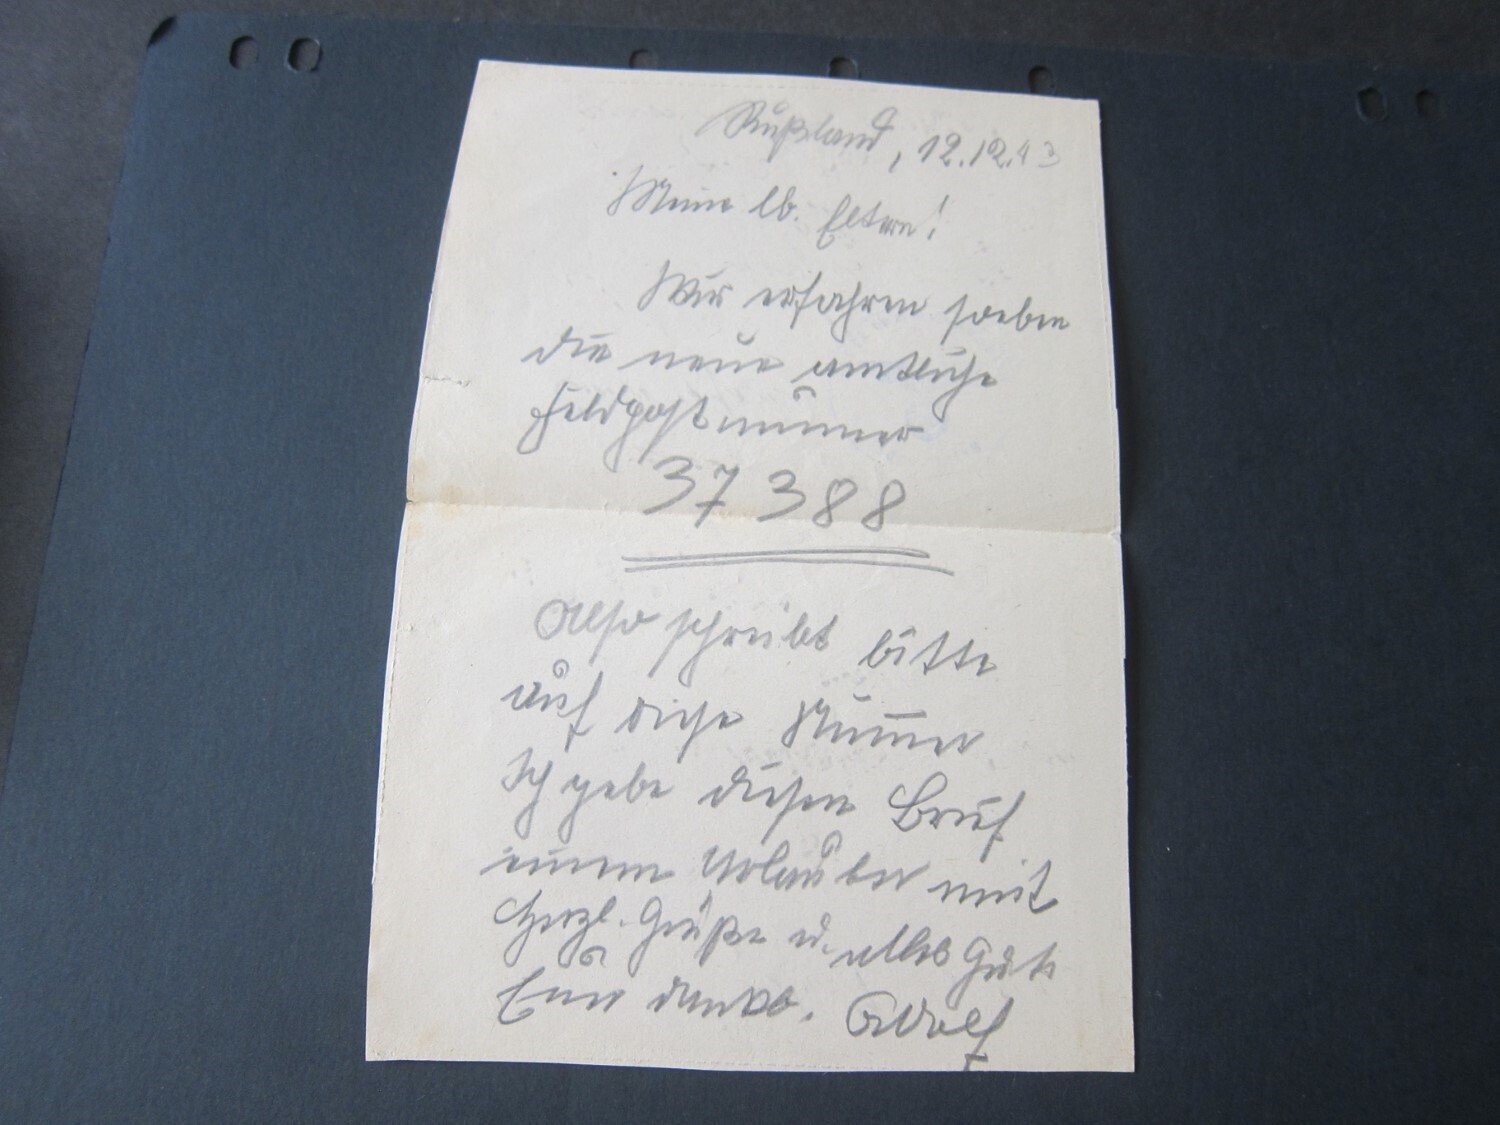 Rußland, 12.12.43
Meine lb. Eltern!
Wir erfahren soeben
die neue amtliche
Feldpostnummer
37 388
Also schreibt bitte
auf diese Num̅er
Ich gebe diesen Brief
einem Urlauber mit
Herzl. Grüße u. alles Gute
Euer dankb. Adolf